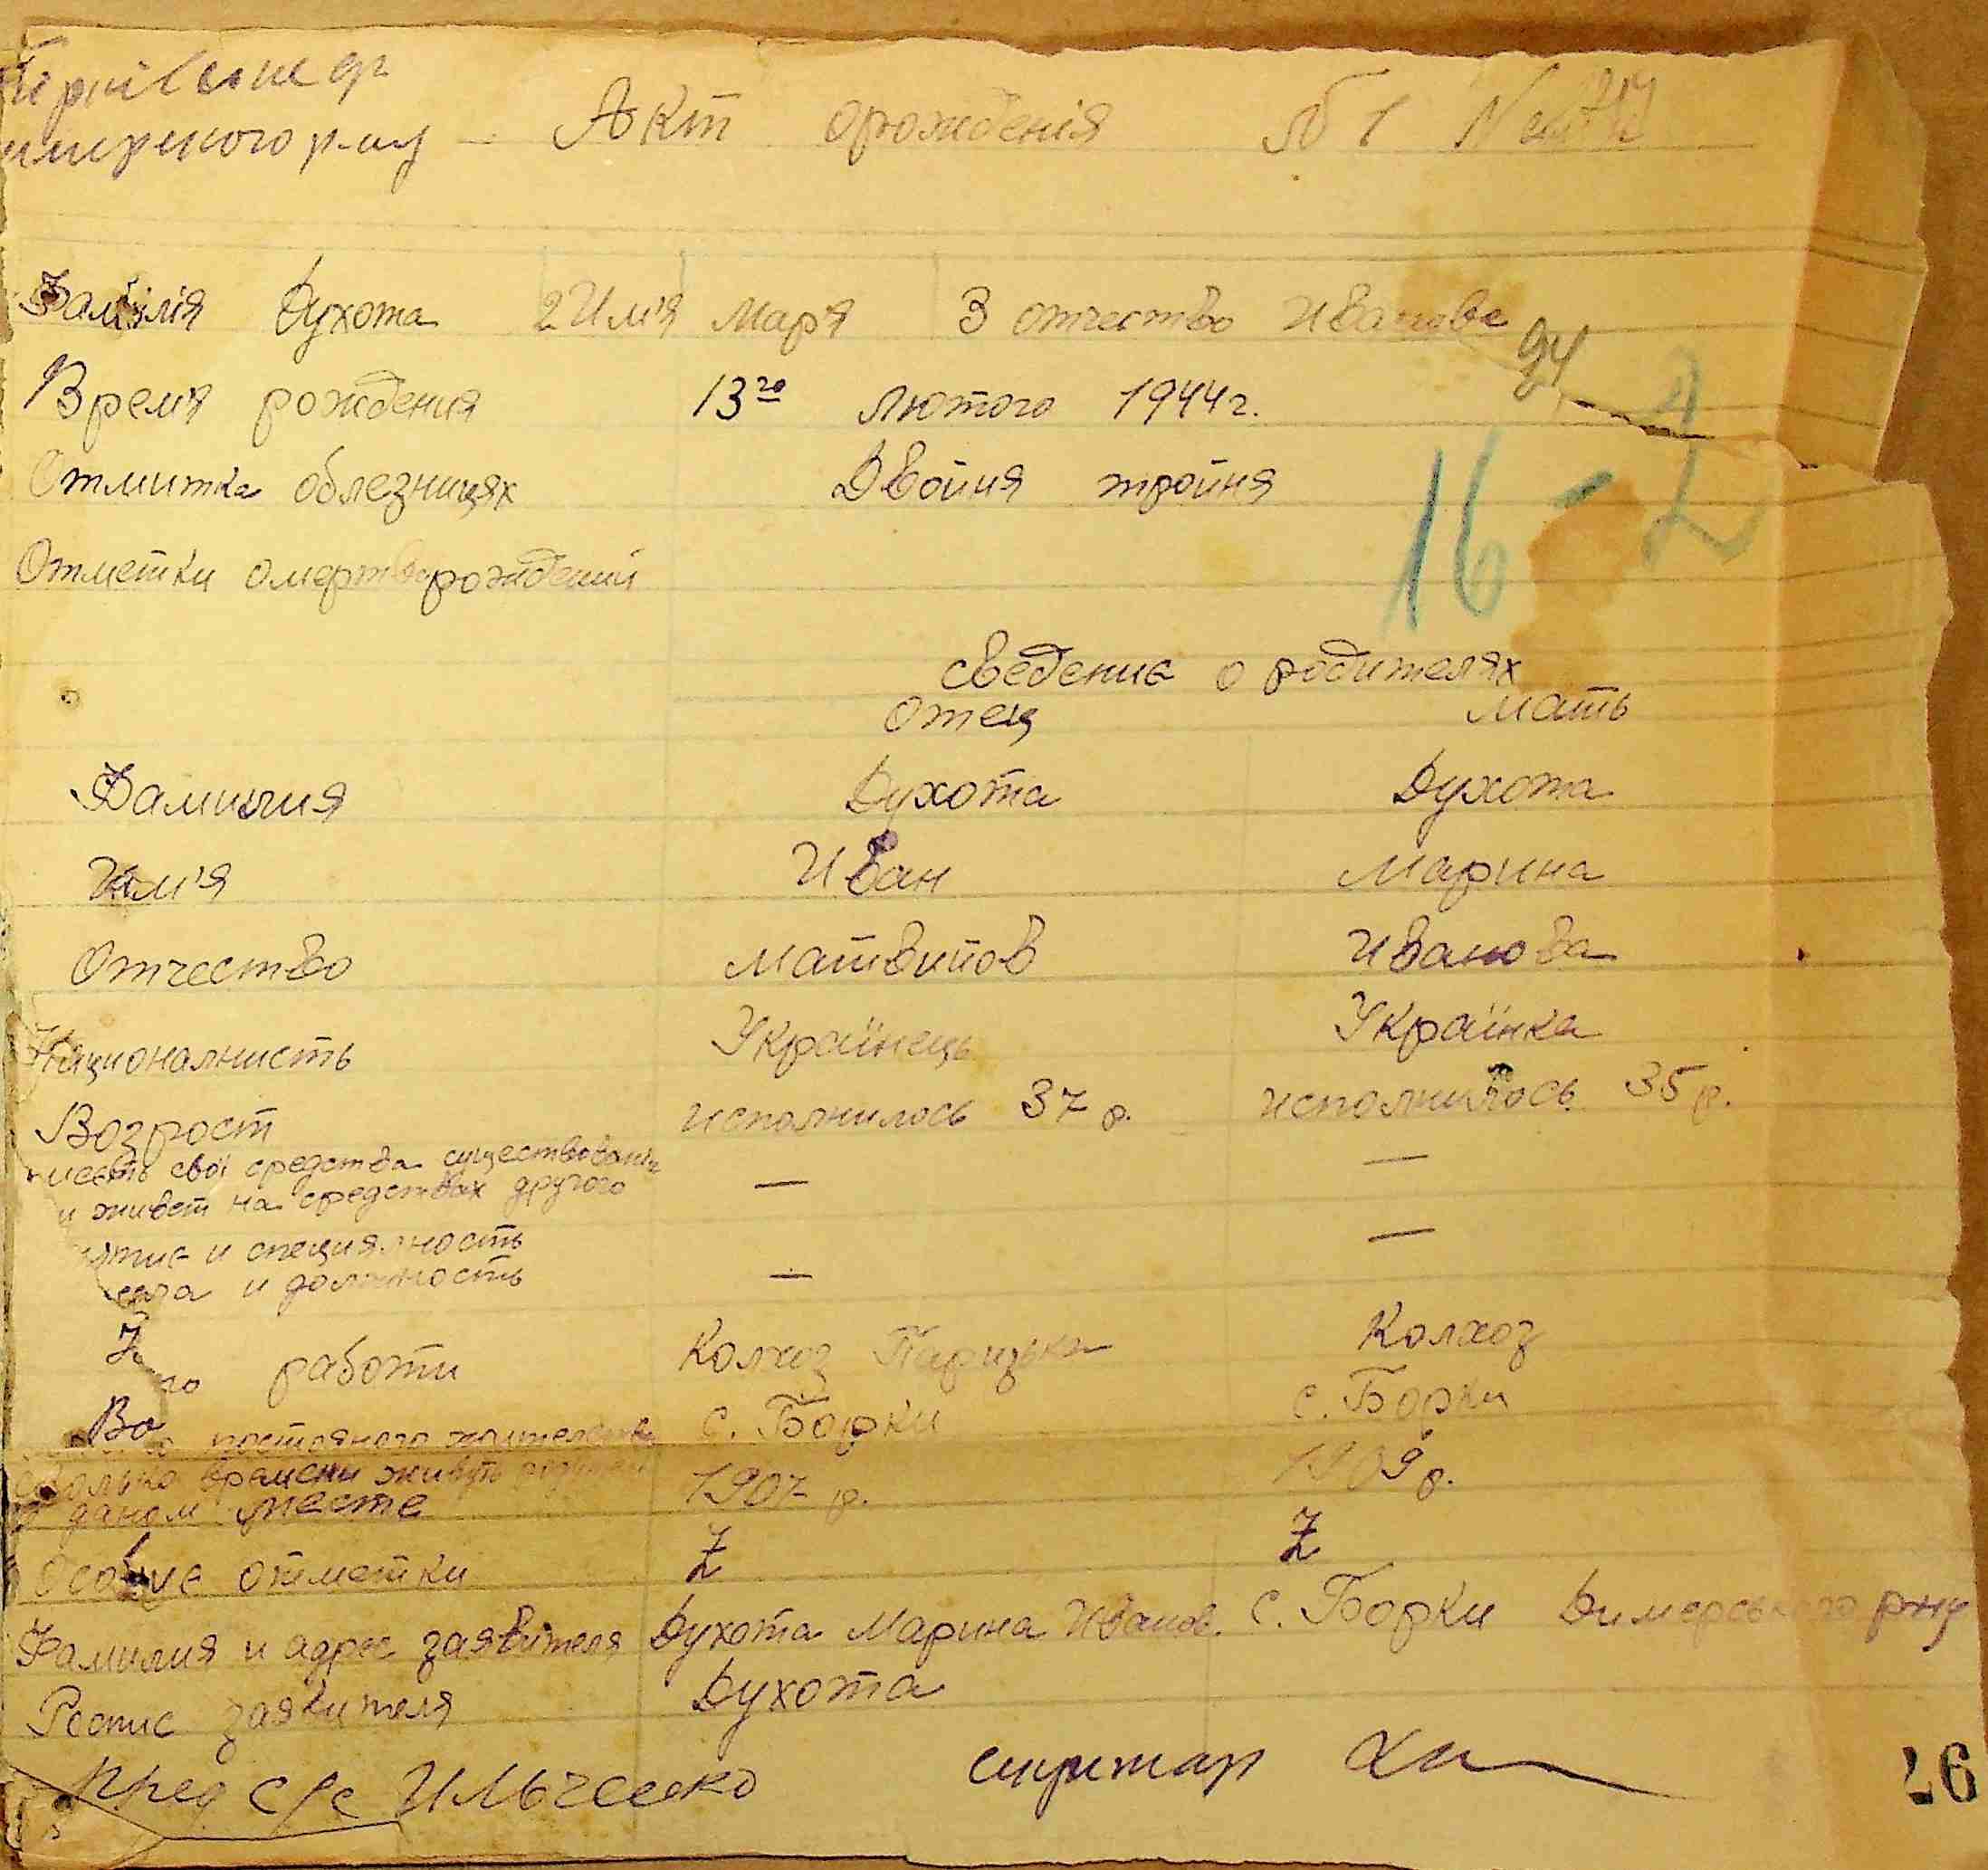 Акт орождения № 1
Фамілія Духота 2 Им'я Маря 3 отчество Иванова
94
Время рождения 13го лютого 1944г.
Отмитка облезницях Двойня тройня
16 - 2
Отметки омертворождении
сведение о родителях
Отец мать
Фамилия Духота Духота
Им'я Иван Марина
Отчество Матвитов Иванова
Националнисть Українець Українка
Возрост исполнилось 37 р. исполнилось 35 р.
свої средства существованія — —
и живет на средствах другого
и специялность — —
и должность
работи Колхоз Паризька Колхоз
постояного жительства с. Борки с. Борки
сколько времени живуть
в даном месте 1907 р. 1909 р.
Особие отметки Z Z
Фамилия и адрес заявителя Духота Марина Иванов. с. Борки Димерського р-ну
Роспис заявителя Духота
Пред с/с Ильченко
26